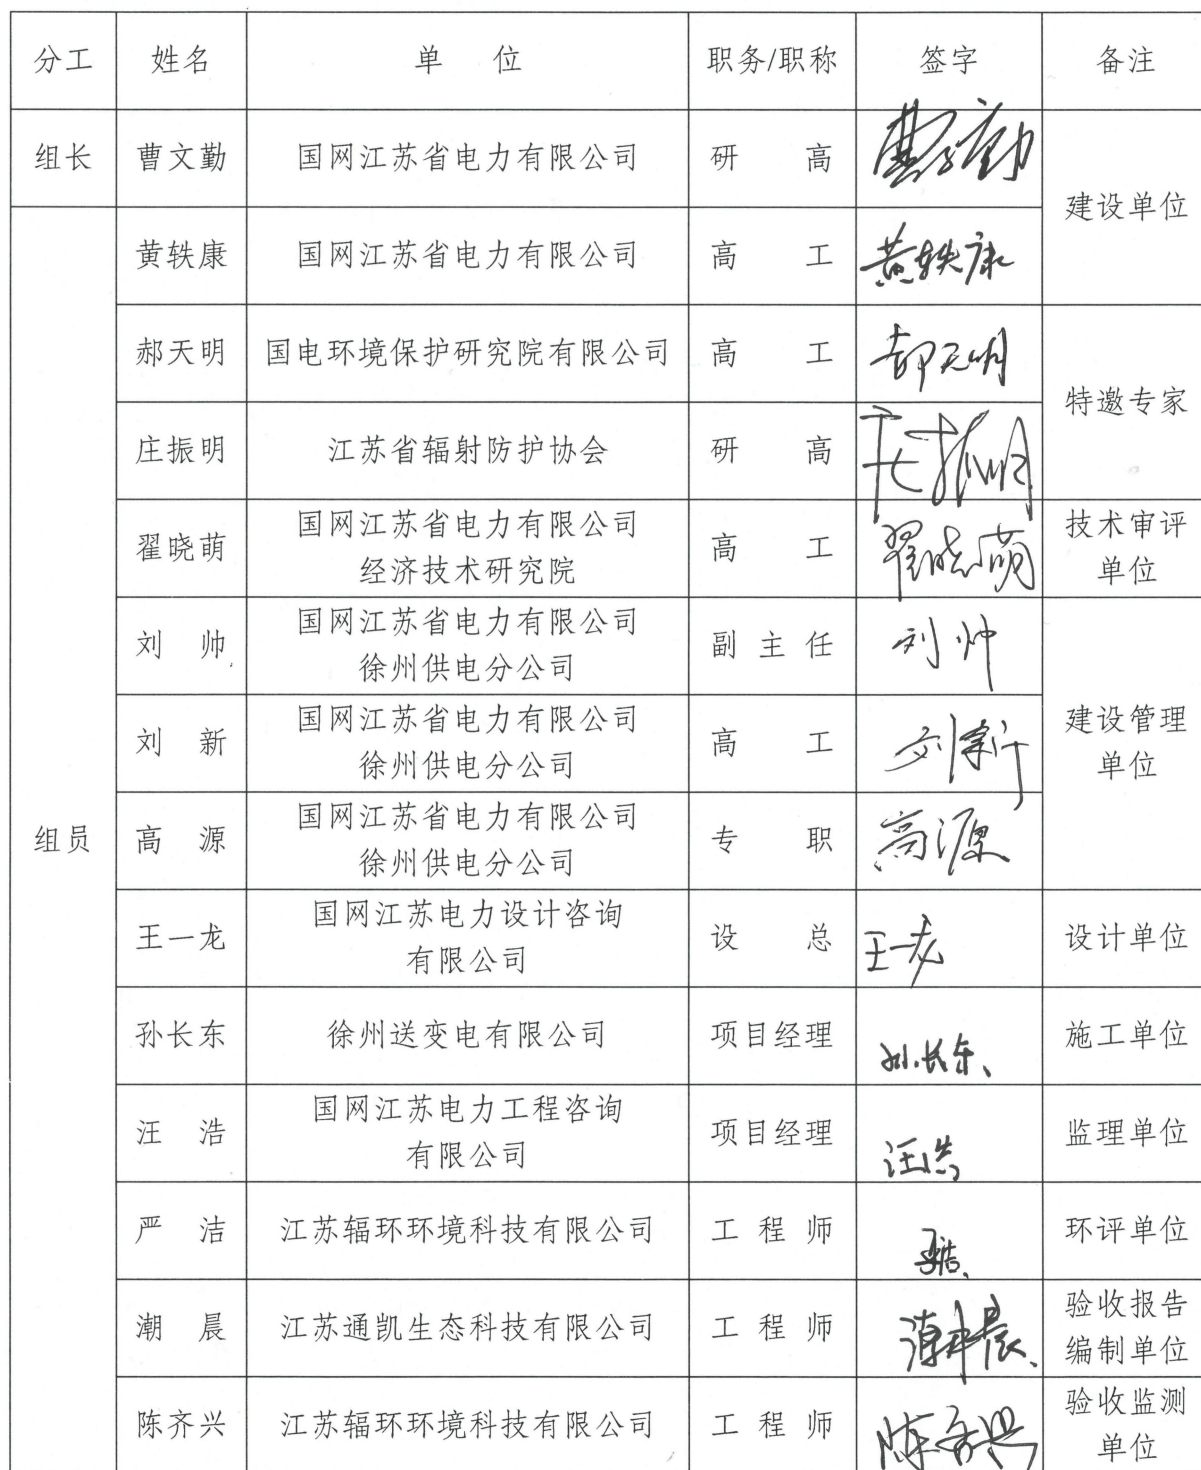 分工 姓名 单 位 职务/职称 签字 备注
组长 曹文勤 国网江苏省电力有限公司 研 高 曹文勤
建设单位
黄轶康 国网江苏省电力有限公司 高 工 黄轶康
郝天明 国电环境保护研究院有限公司 高 工 郝天明
特邀专家
庄振明 江苏省辐射防护协会 研 高 庄振明
国网江苏省电力有限公司
经济技术研究院
翟晓萌 高 工 翟晓萌
技术审评
单位
刘 帅
国网江苏省电力有限公司
徐州供电分公司
副 主 任 刘帅
刘 新
国网江苏省电力有限公司
徐州供电分公司
高 工 刘新
建设管理
单位
组员 高 源
国网江苏省电力有限公司
徐州供电分公司
专 职 高源
王一龙
国网江苏电力设计咨询
有限公司
设 总 王一龙 设计单位
孙长东 徐州送变电有限公司 项目经理 孙长东 施工单位
汪 浩
国网江苏电力工程咨询
有限公司
项目经理 汪浩 监理单位
严 洁 江苏辐环环境科技有限公司 工 程 师 严洁 环评单位
潮 晨 江苏通凯生态科技有限公司 工 程 师 潮晨
验收报告
编制单位
陈齐兴 江苏辐环环境科技有限公司 工 程 师 陈齐兴
验收监测
单位